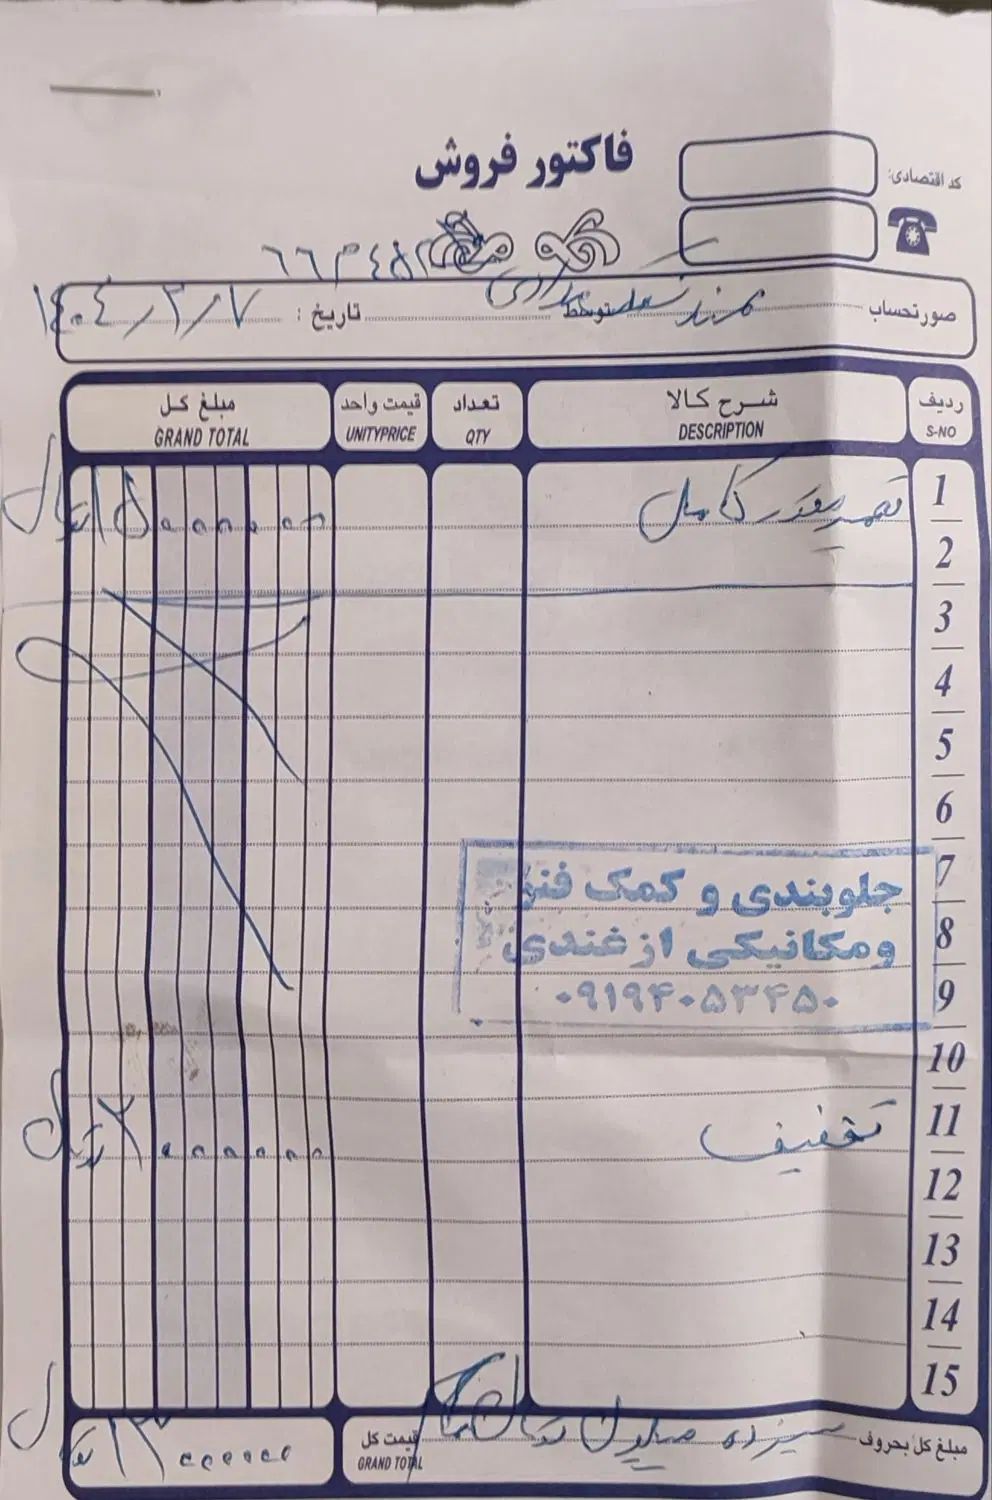 فاکتور فروش
کد اقتصادی:
صورتحساب
توسط
تاریخ : ۱۴۰۴/۳/۷
ردیف شرح کالا تعداد قیمت واحد مبلغ کل
S-NO DESCRIPTION QTY UNITYPRICE GRAND TOTAL
1 تعمیر موتور کامل ۱۵۰۰۰۰۰۰
2
3
4
5
6
7
جلوبندی و کمک فنر
8
و مکانیکی ازغندی
9
۰۹۱۹۴۰۵۳۴۵۰
10
11 تخفیف ۲۰۰۰۰۰۰
12
13
14
15
مبلغ کل بحروف سیزده میلیون تومان قیمت کل ۱۳۰۰۰۰۰۰
GRAND TOTAL